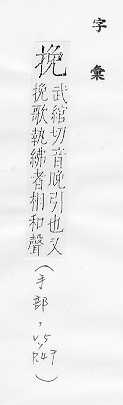 字彙
挽
武綰切音晚引也又
挽歌執紼者相和聲
(手部，v.5 P.47)